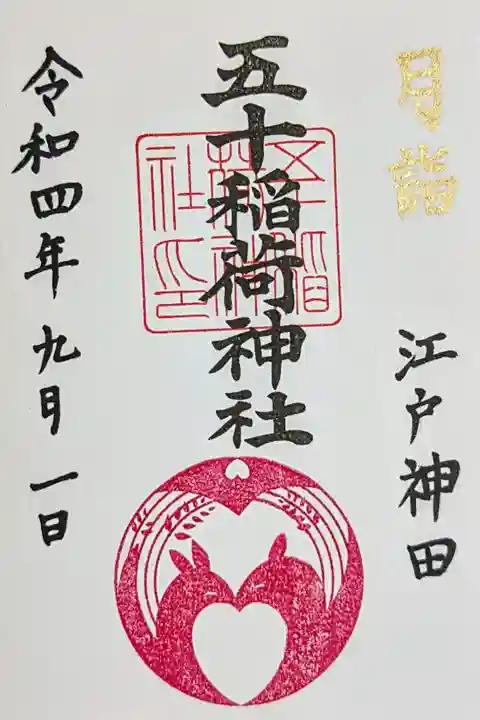 月詣
江戸神田
五十稲荷神社
五十稲荷神社印
令和四年九月一日